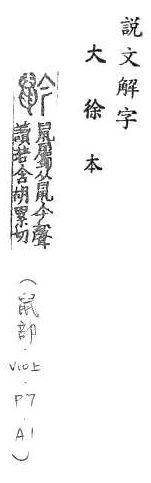 説文解字
大徐本
鼠屬从鼠今聲
讀若含胡男切
(鼠部.V10上.P7.A1)